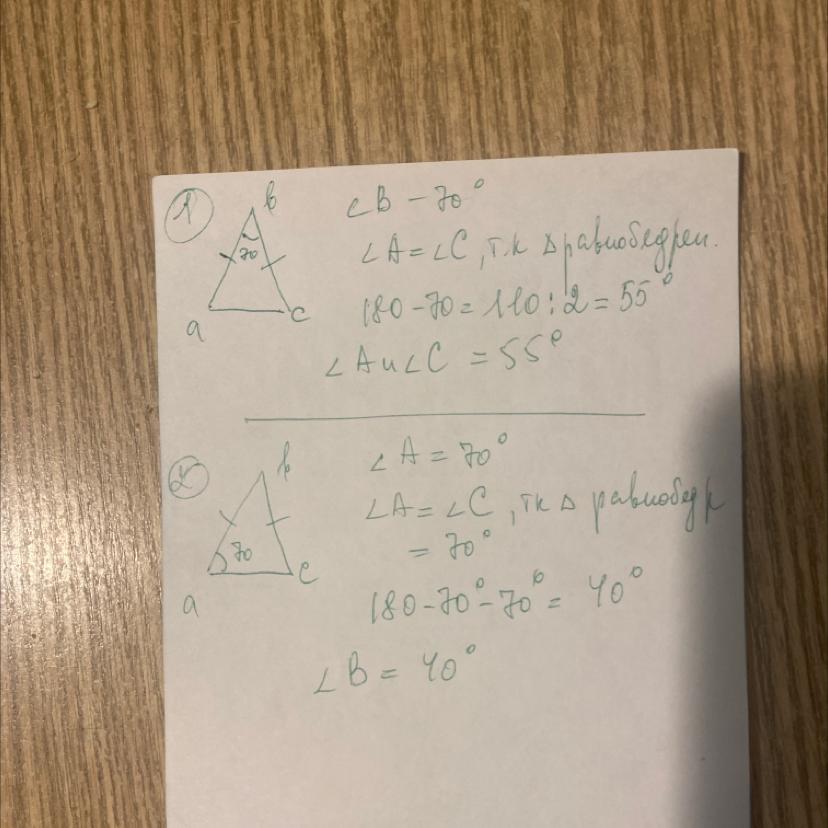 1
b
70
a
c
∠B - 70°
∠A = ∠C, т.к △ равнобедрен.
180 - 70 = 110 : 2 = 55°
∠A и ∠C = 55°
2
b
70
a
c
∠A = 70°
∠A = ∠C, тк △ равнобедр
= 70°
180 - 70° - 70° = 40°
∠B = 40°